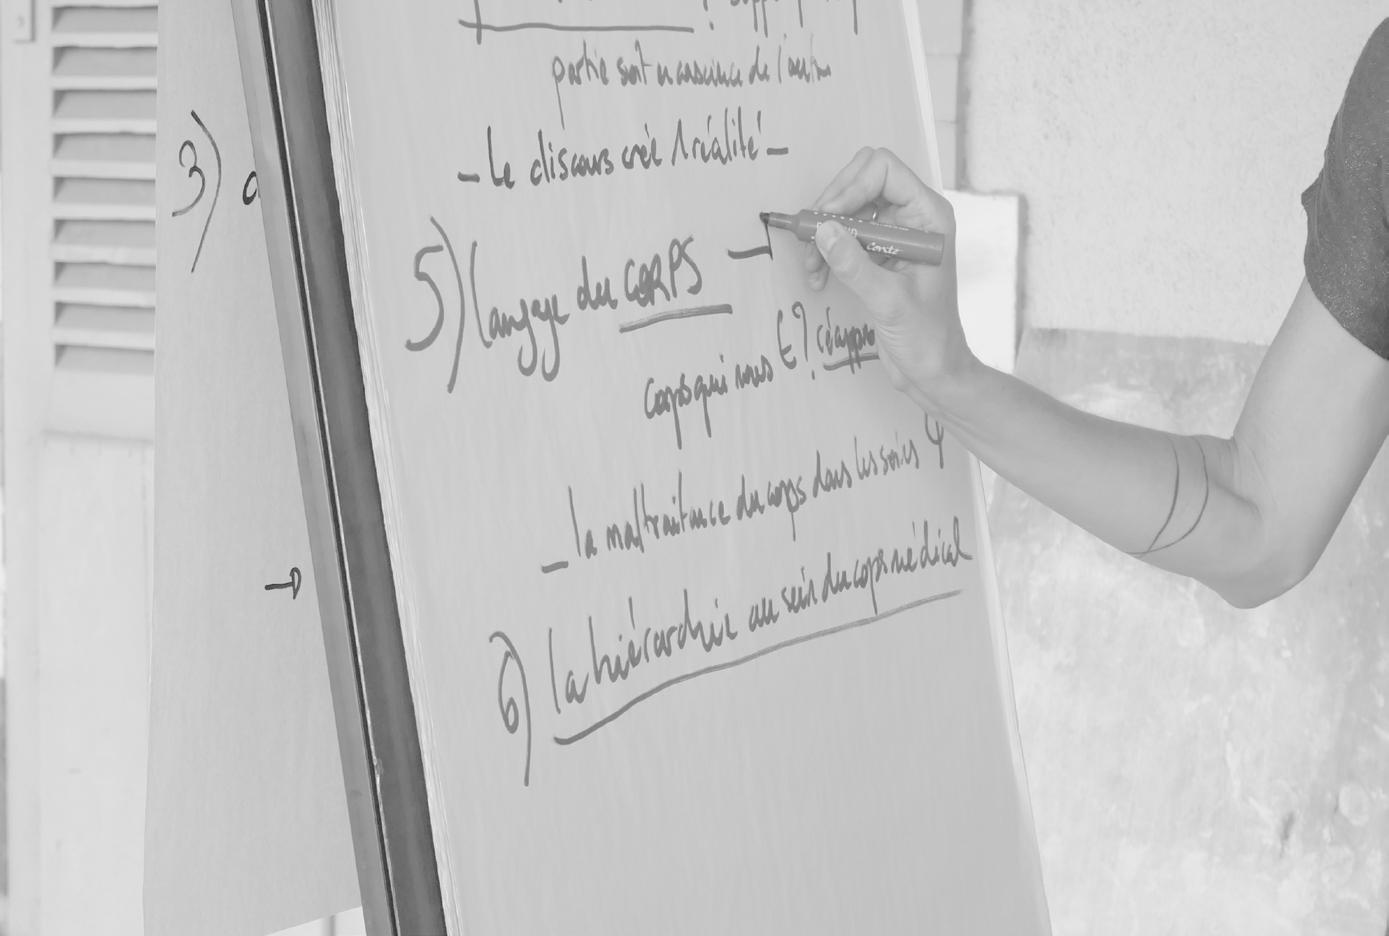 3)
partie sont n conscience de l'autre
- Le discours créé 1 réalité -
5) langage du CORPS →
Corps qui nous E? réappro
- la maltraitance du corps dans les soins Ψ
6) la hiérarchie au sein du corps médical
Conté